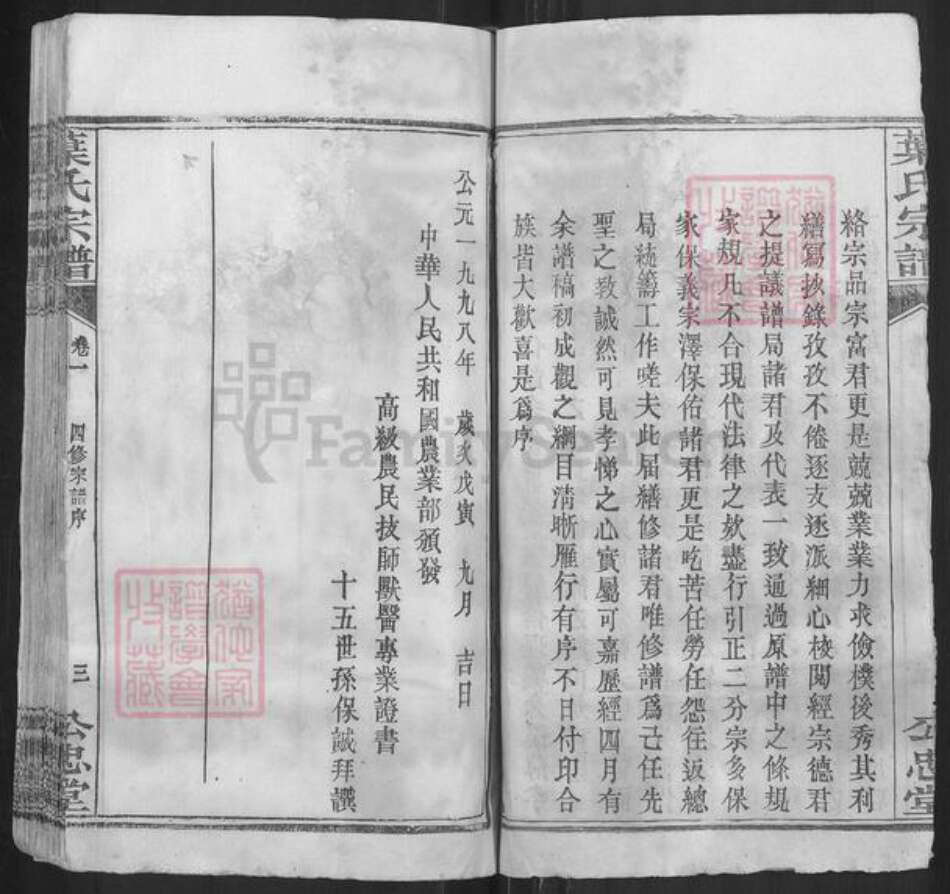 葉氏宗譜
公忠堂
絡宗品宗富君更是兢兢業業力求儉樸後秀其利
繕寫抄錄孜孜不倦逐支逐派細心校閱經宗德君
之提議譜局諸君及代表一致通過原譜中之條規
家規凡不合現代法律之款盡行引正二分宗多保
家保義宗澤保佑諸君更是吃苦任勞任怨往返總
局統籌工作嗟夫此届繕修諸君唯修譜爲己任先
聖之致誠然可見孝悌之心實屬可嘉歷經四月有
余譜稿初成觀之綱目清晰雁行有序不日付印合
族皆大歡喜是爲序
公元一九九八年 歲次戊寅 九月 吉日
中華人民共和國農業部頒發
高級農民技師獸醫專業證書
十五世孫保誠拜譔
葉氏宗譜
卷一
四修宗譜序
三
公忠堂
FamilySearch